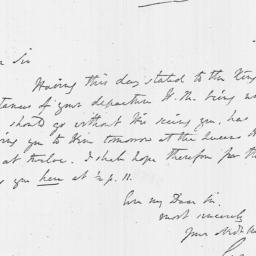 Sir
Having this day stated to the King
of your departure H. M. being
should go without His seeing you, has
you to Him tomorrow at the Queens
at twelve. I shall hope therefore for the
you here at ½ p. 11.
Ever my Dear Sir
most sincerely
Your